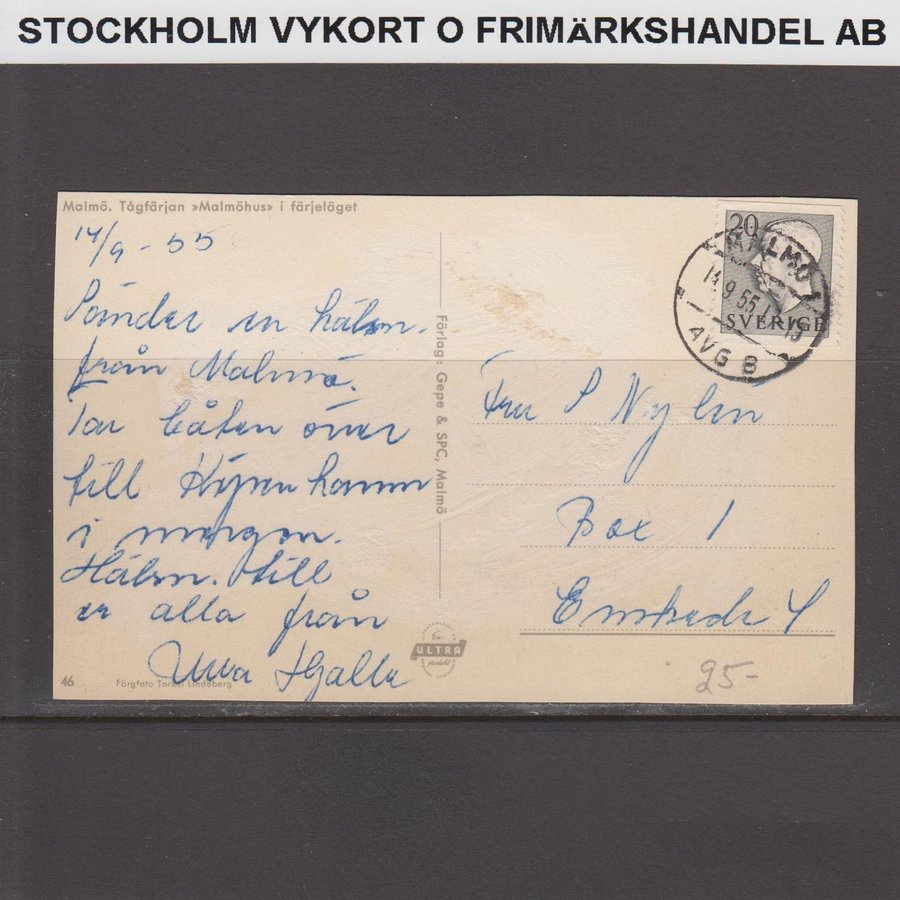 STOCKHOLM VYKORT O FRIMÄRKSHANDEL AB
Malmö. Tågfärjan »Malmöhus» i färjeläget
14/9 - 55
Sänder en hälsn.
från Malmö.
Tar båten över
till Köpenhamn
i morgon.
Hälsn. till
er alla från
Förlag: Gepe & SPC, Malmö
20
SVERIGE
MALMÖ 1
14.9.55
AVG B
Fru S Nylen
Box 1
Enskede 4
En
ULTRA
produkt
46
Färgfoto Torkel Lindeberg
25-